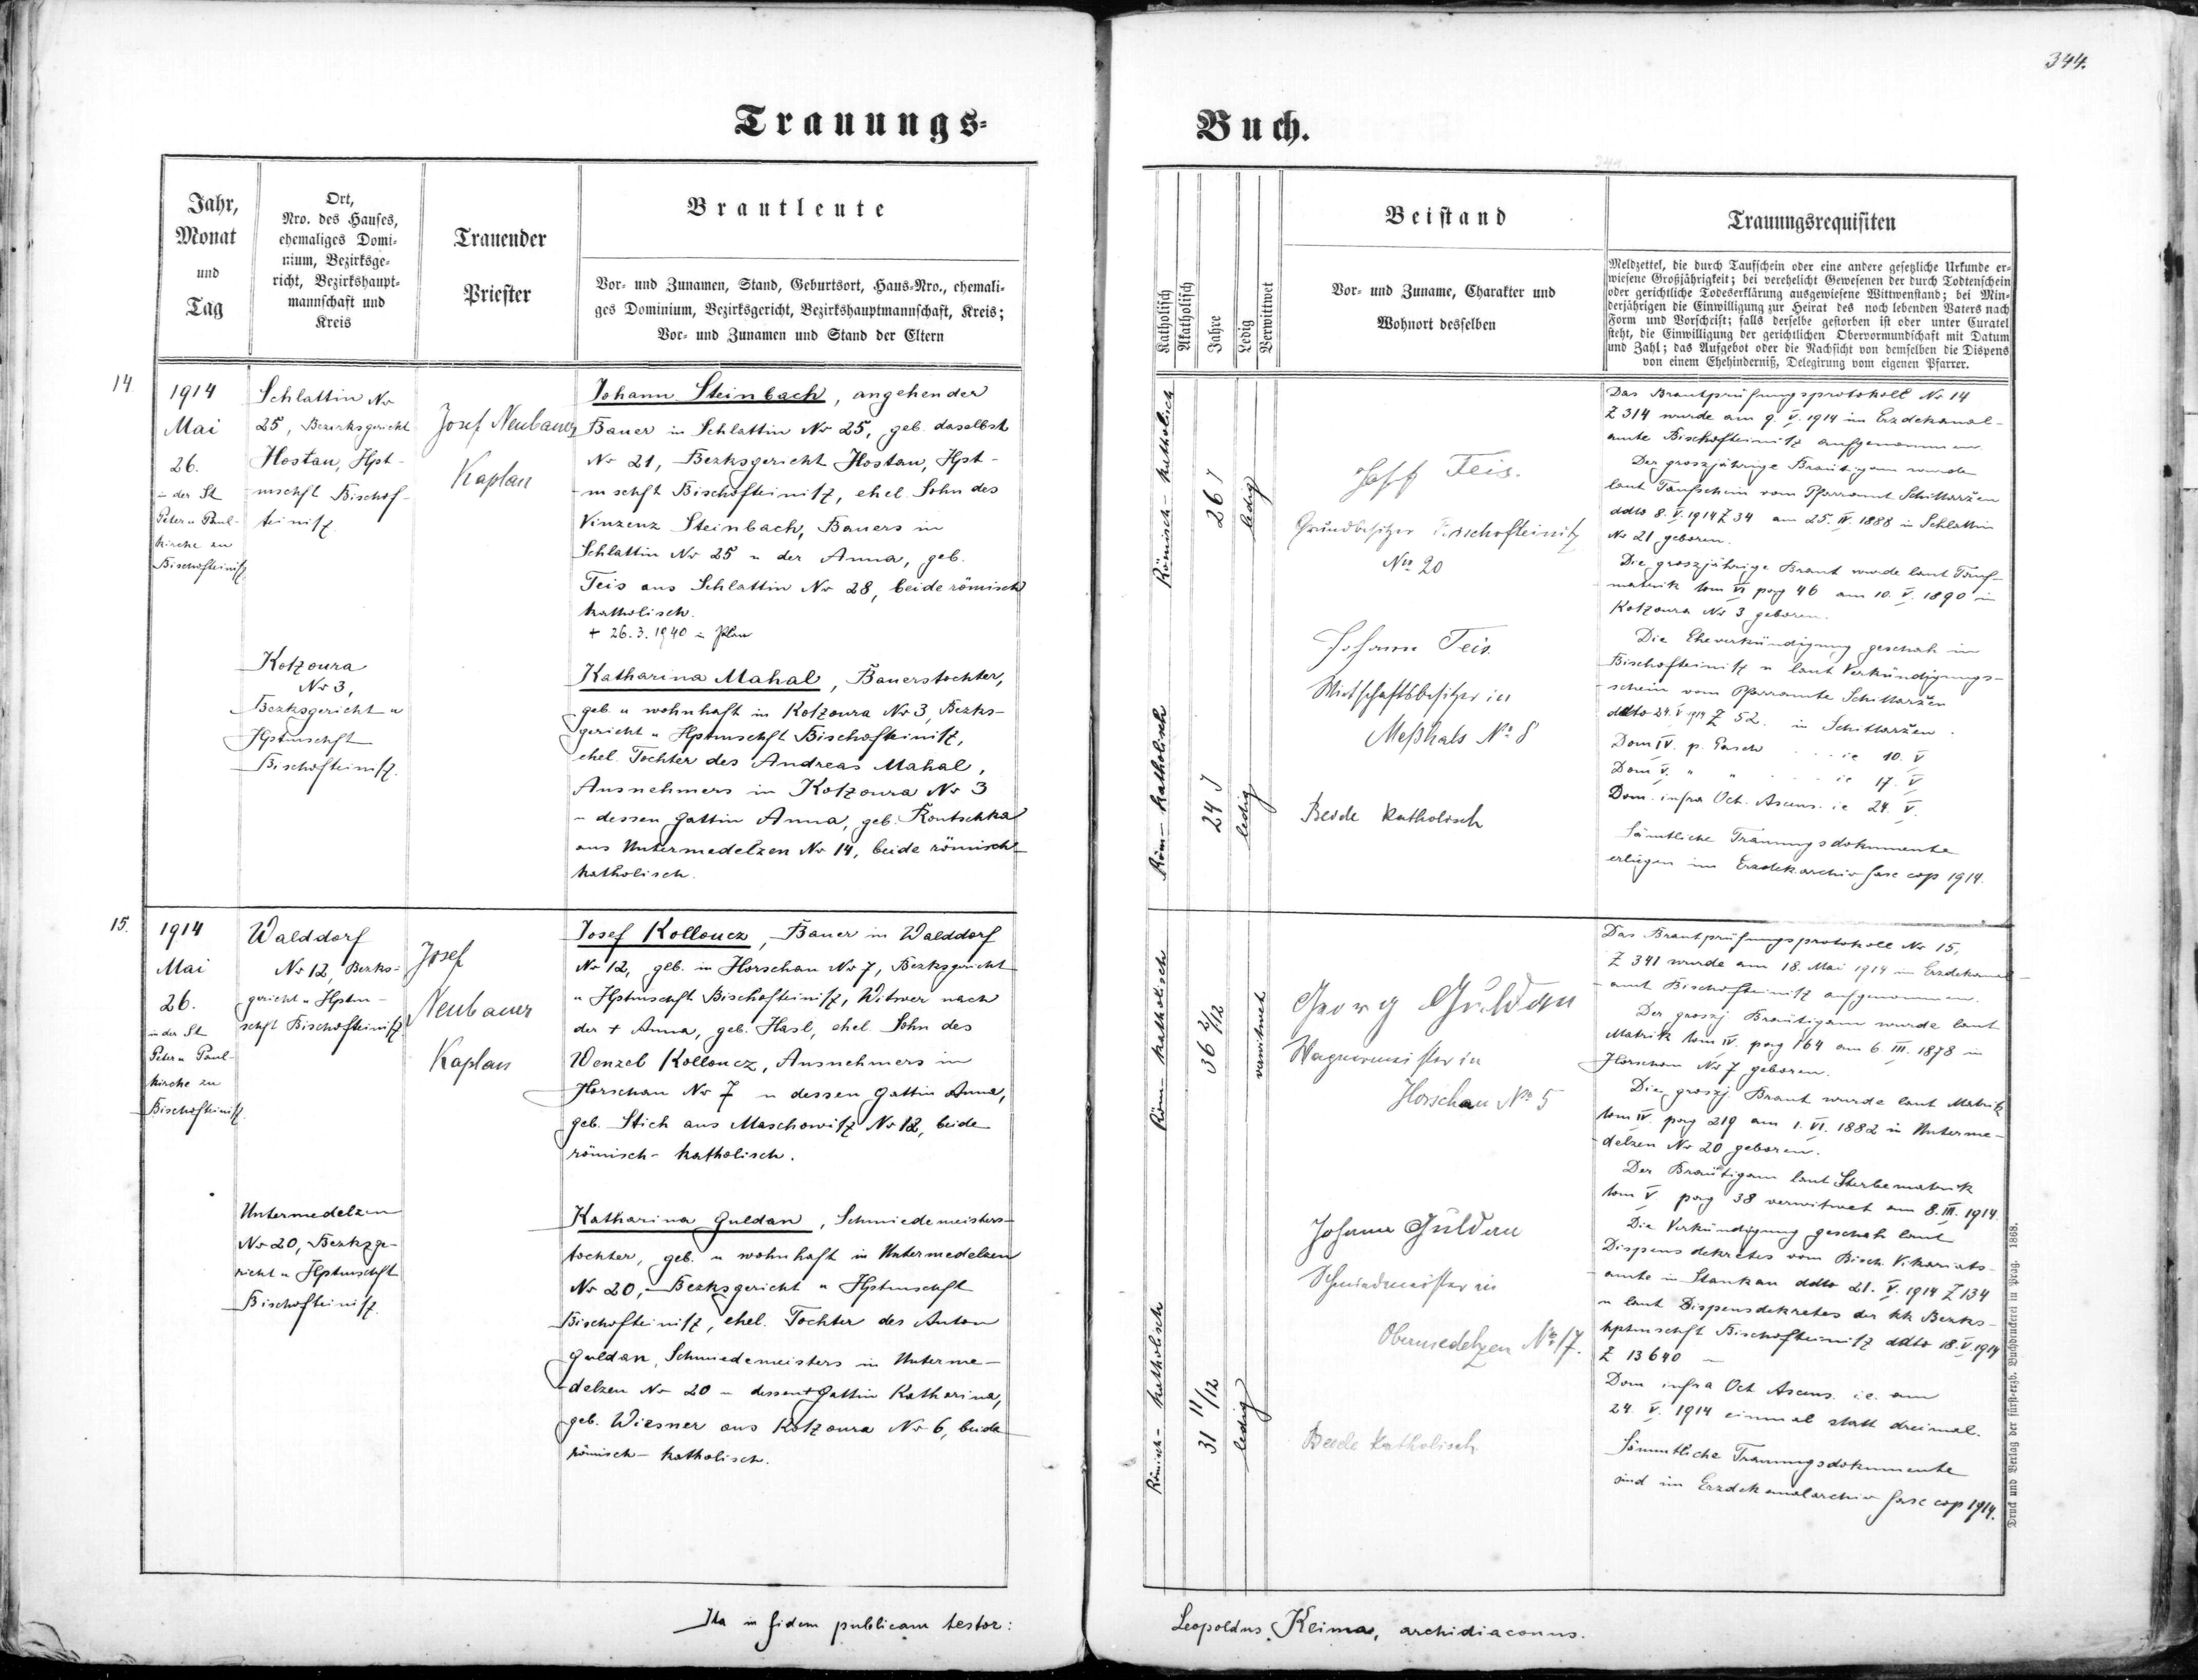 344.
Trauungs-
Buch.
Jahr,
Monat
und
Tag
Ort,
Nro. des Hauses,
ehemaliges Domi-
nium, Bezirksge-
richt, Bezirkshaupt-
mannschaft und
Kreis
Trauender
Priester
Brautleute
Vor- und Zunamen, Stand, Geburtsort, Haus-Nro., ehemali-
ges Dominium, Bezirksgericht, Bezirkshauptmannschaft, Kreis;
Vor- und Zunamen und Stand der Eltern
Katholisch
Akatholisch
Jahre
Ledig
Verwittwet
Beistand
Vor- und Zuname, Charakter und
Wohnort desselben
Trauungsrequisiten
Meldzettel, die durch Taufschein oder eine andere gesetzliche Urkunde er-
wiesene Großjährigkeit; bei verehelicht Gewesenen der durch Todtenschein
oder gerichtliche Todeserklärung ausgewiesene Wittwenstand; bei Min-
derjährigen die Einwilligung zur Heirat des noch lebenden Vaters nach
Form und Vorschrift; falls derselbe gestorben ist oder unter Curatel
steht, die Einwilligung der gerichtlichen Obervormundschaft mit Datum
und Zahl; das Aufgebot oder die Nachsicht von demselben die Dispens
von einem Ehehinderniß, Delegirung vom eigenen Pfarrer.
14
1914
Mai
26.
in der St
Peter u Paul-
kirche zu
Bischofteinitz
Schlattin No
25, Bezirksgericht
Hostau, Hpt-
mschft Bischof-
teinitz.
Josef Neubauer
Kaplan
Johann Steinbach, angehender
Bauer in Schlattin No 25, geb. daselbst
No 21, Bezksgericht Hostau, Hpt-
mschft Bischofteinitz, ehel. Sohn des
Vinzenz Steinbach, Bauers in
Schlattin No 25 u der Anna, geb.
Teis aus Schlattin No 28, beide römisch
katholisch.
+ 26.3.1940 in Plan
Römisch-katholisch
26 J
ledig
Josef Teis.
Grundbesitzer Bischofteinitz
Nro 20
Das Brautprüfungsprotokoll No 14
Z 314 wurde am 9. V. 1914 im Erzdekanal-
amte Bischofteinitz aufgenommen.
Der grossjährige Bräutigam wurde
laut Taufschein vom Pfarramt Schittaržen
ddto 8. V. 1914 Z 34 am 25. IV. 1888 in Schlattin
No 21 geboren.
Die grossjährige Braut wurde laut Tauf-
matrik tom VI pag 46 am 10. V. 1890 in
Kotzoura No 3 geboren.
Kotzoura
No 3,
Bezksgericht u
Hptmschft
Bischofteinitz.
Katharina Mahal, Bauerstochter,
geb. u wohnhaft in Kotzoura No 3, Bezks-
gericht u Hptmschft Bischofteinitz,
ehel. Tochter des Andreas Mahal,
Ausnehmers in Kotzoura No 3
u dessen Gattin Anna, geb. Kontschka
aus Untermedelzen No 14, beide römisch
katholisch.
Röm-katholisch
24 J
ledig
Johann Teis.
Wirtschaftsbesitzer in
Meßhals No 8
Beide katholisch
Die Eheverkündigung geschah in
Bischofteinitz u laut Verkündigungs-
schein vom Pfarramte Schittaržen
ddto 24. V 1914 Z 52. in Schittaržen.
Dom IV. p. Pasch . . . ie 10. V
Dom V. " " . . . ie 17. V
Dom. infra Oct. Ascens. ie 24. V.
Sämtliche Trauungsdokumente
erliegen im Erzdekarchiv fasc cop 1914.
15.
1914
Mai
26.
in der St
Peter u Paul-
kirche zu
Bischofteinitz.
Walddorf
No 12, Bezks-
gericht u Hptm-
schft Bischofteinitz
Josef
Neubauer
Kaplan
Josef Kolloucz, Bauer in Walddorf
No 12, geb. in Horschau No 7, Bezksgericht
u Hptmschft Bischofteinitz, Witwer nach
der + Anna, geb. Hasl, ehel. Sohn des
Wenzel Kolloucz, Ausnehmers in
Horschau No 7 u dessen Gattin Anna,
geb. Stich aus Maschowitz No 12, beide
römisch-katholisch.
Röm-katholisch
36 2/12
verwitwet
Georg Guldan
Wagnermeister in
Horschau No 5
Das Brautprüfungsprotokoll No 15,
Z 341 wurde am 18. Mai 1914 im Erzdekanal-
amt Bischofteinitz aufgenommen.
Der grossj Bräutigam wurde laut
Matrik tom IV. pag 164 am 6. III. 1878 in
Horschau No 7 geboren.
Die grossj. Braut wurde laut Matrik
tom IV. pag 219 am 1. VI. 1882 in Unterme-
delzen No 20 geboren.
Der Bräutigam laut Sterbematrik
tom V pag 38 verwitwet am 8. III. 1914.
Untermedelzen
No 20, Bezksge-
richt u Hptmschft
Bischofteinitz.
Katharina Guldan, Schmiedemeisters-
tochter, geb. u wohnhaft in Untermedelzen
No 20, Bezksgericht u Hptmschft
Bischofteinitz, ehel. Tochter des Anton
Guldan, Schmiedemeisters in Unterme-
delzen No 20 u dessen + Gattin Katharina,
geb. Wiesner aus Kotzoura No 6, beide
römisch-katholisch.
Römisch-katholisch
31 11/12
ledig
Johann Guldan
Schmiedmeister in
Obermedelzen No 17.
Beide katholisch.
Die Verkündigung geschah laut
Dispensdekretes vom Bisch. Vikariats-
amte in Stankau ddto 21. V. 1914 Z 134
u laut Dispensdekretes der kk Bezks-
hptmschft Bischofteinitz ddto 18. V. 1914
Z 13640
Dom infra Oct Ascens. ie. am
24. V. 1914 einmal statt dreimal.
Sämmtliche Trauungsdokumente
sind im Erzdekanalarchiv fasc cop 1914.
Druck und Verlag der fürst-erzb. Buchdruckerei in Prag. 1868.
Ita in fidem publicam testor:
Leopoldus Keima, archidiaconus.